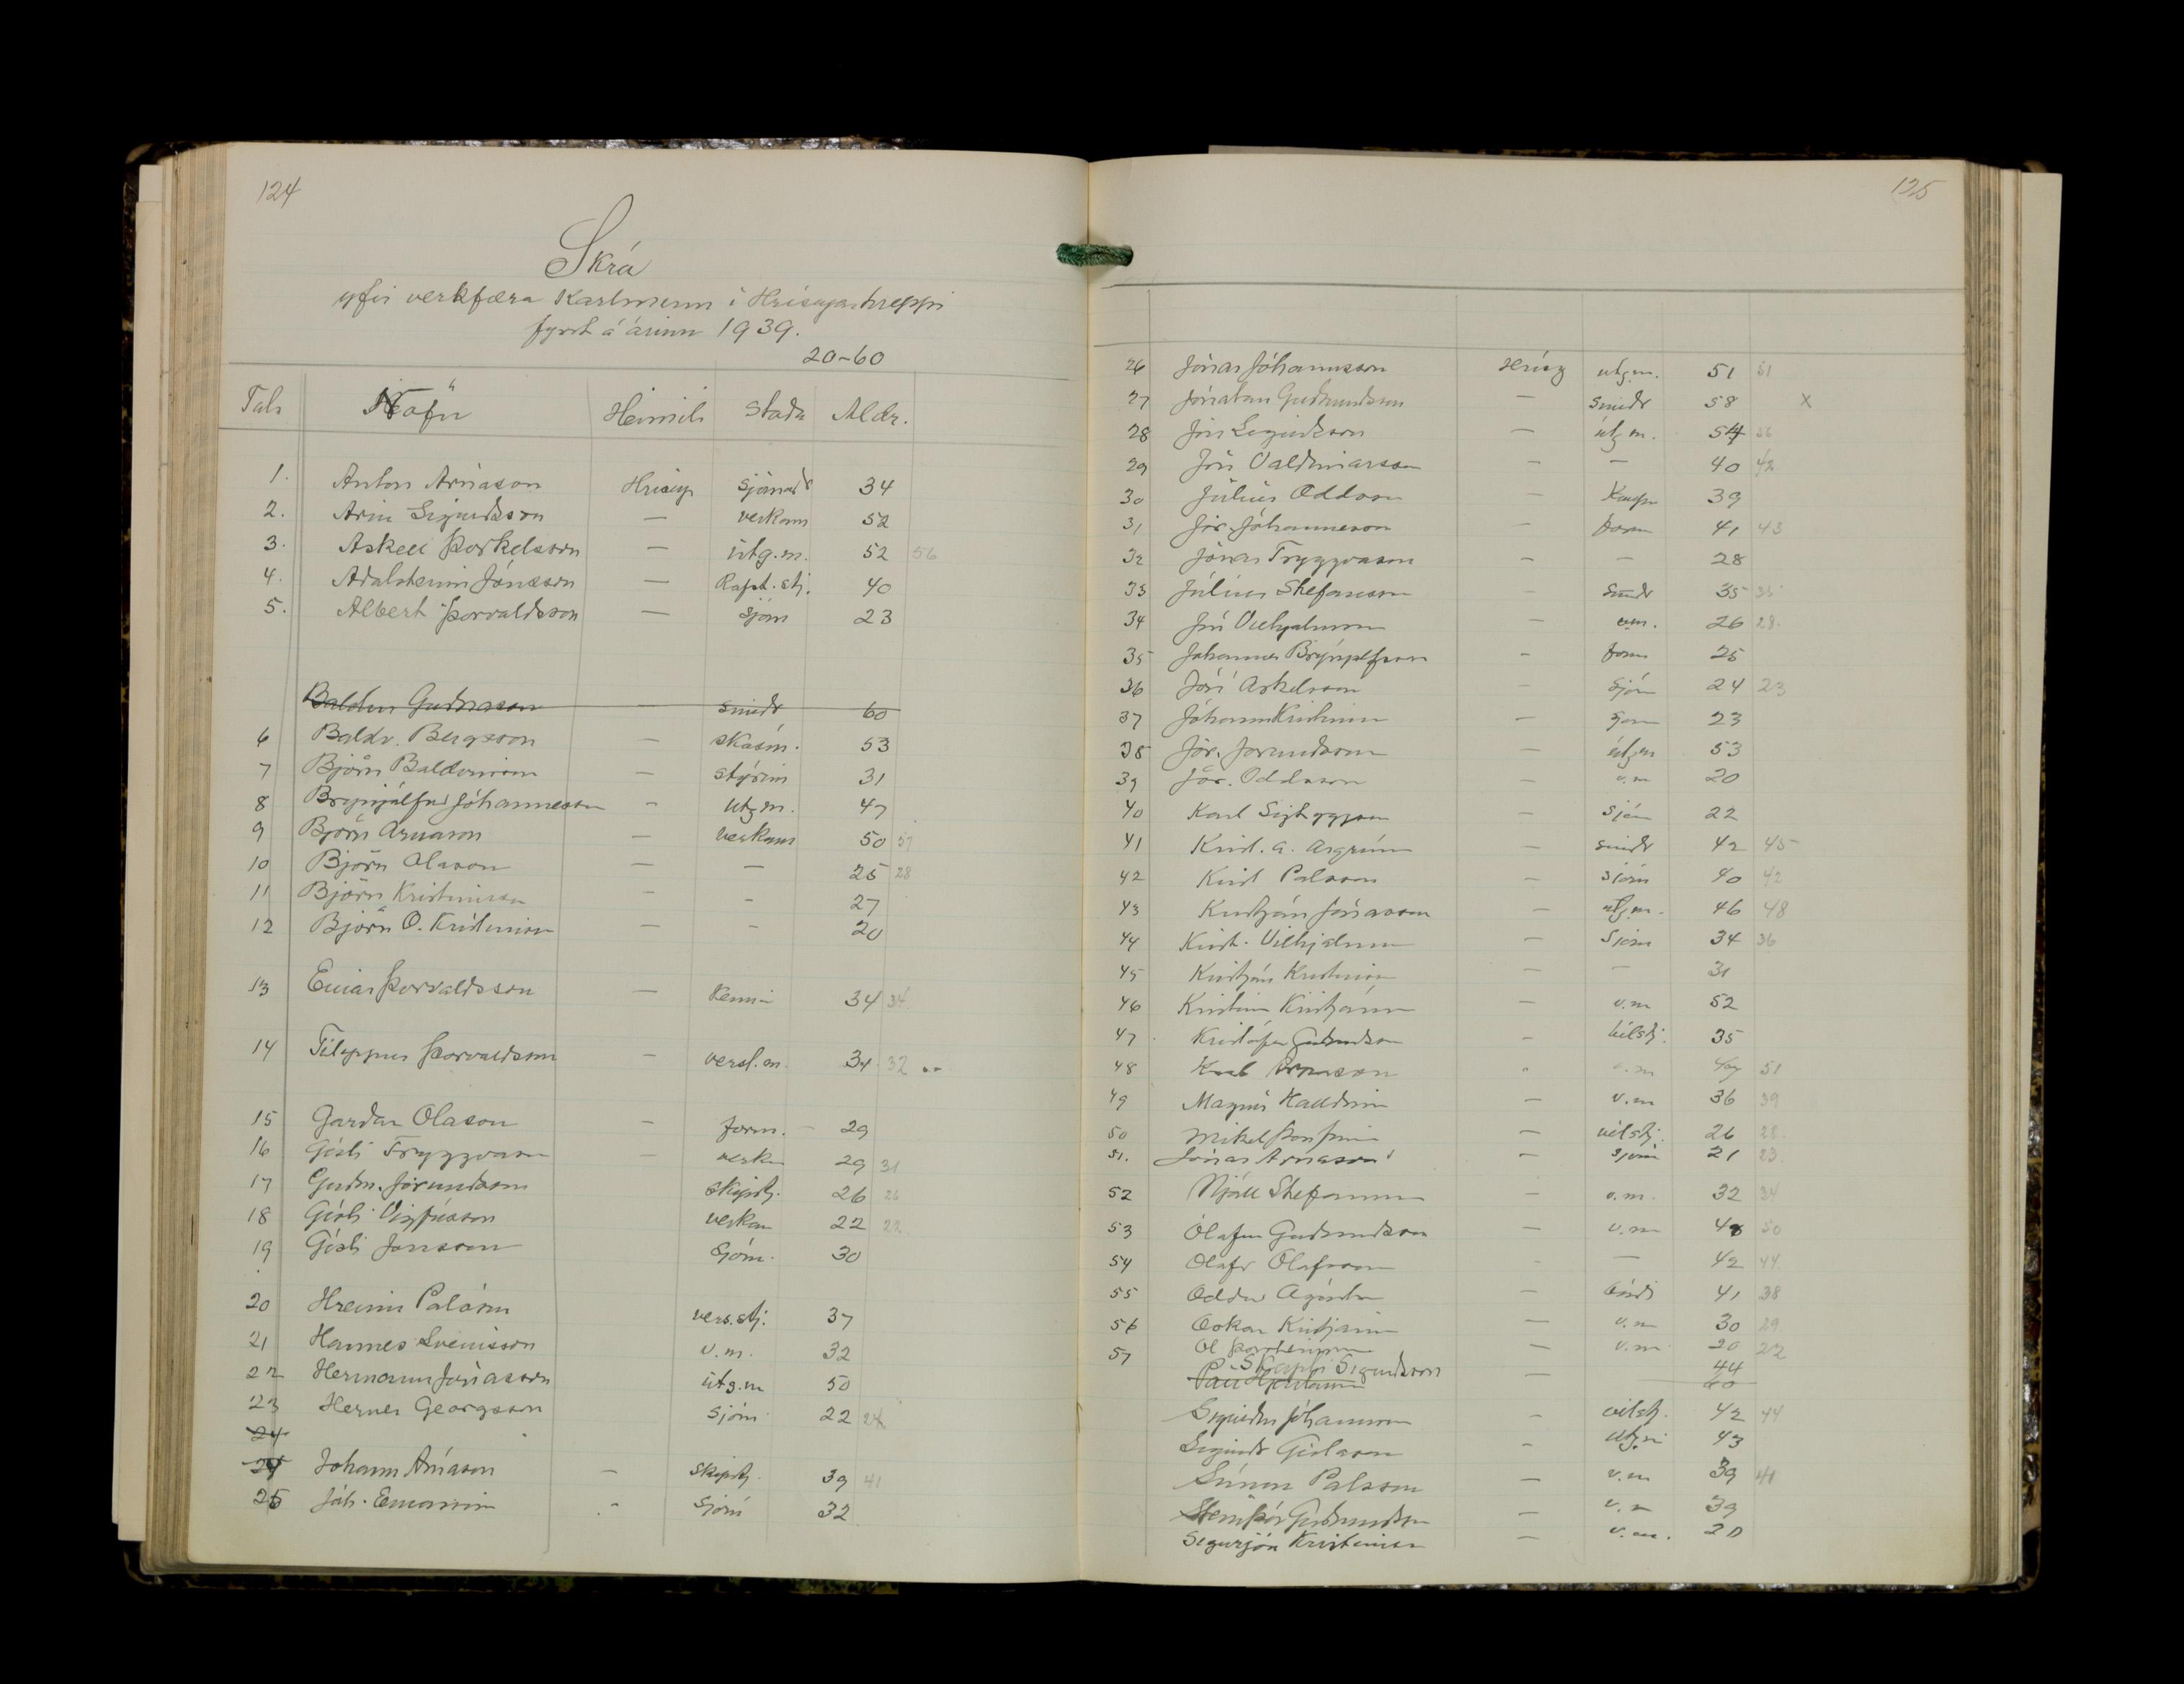 124
Skrá
yfir verkfæra Karlmenn i Hríseyarhreppi
fyrst á árinu 1939.
20-60
Tals Nöfn Heimili Stada Aldr.
1. Anton Arnason Hrisey sjómadr 34
2. Arni Sigurdsson — verkam 52
3. Askell Þorkelsson — útg.m. 52 56
4. Adalsteinn Jónasson — Rafst.stj. 40
5. Albert Þorvaldsson — Sjóm 23
Baldvin Gudnason — smidr 60
6 Baldv. Bergsson — skósm. 53
7 Björn Baldvinsson — stýrim 31
8 Brynjólfur Jóhannesson - utg.m. 47
9 Björn Arnason — verkam 50 51
10 Björn Olason — — 25 28
11 Björn Kristinsson - - 27
12 Björn O. Kristinsson — - 20
13 Einar Þorvaldsson — Kenn 34 34
14 Filippus Þorvaldsson - versl.m. 34 32
15 Gardar Olason - form. 29
16 Gisli Tryggvason — verkm 29 31
17 Gudm. Jörundsson skipstj. 26 26
18 Gisli Vigfússon verkam 22 22
19 Gísli Jónsson Sjóm. 30
20 Hreinn Pálsson vers.stj. 37
21 Hannes Sveinsson v.m. 32
22 Hermann Jónasson útg.m 50
23 Hernes Georgsson Sjóm 22 24
24
24 Johann Arnason — skipstj. 39 41
25 Jóh. - Sjóm 32
125
26 Jónas Jóhannsson Hrísey utg.m. 51 51
27 Jónatan Gudmundsson — smidr 58 X
28 Jón Sigurdsson — útg m. 54 56
29 Jón Valdimarsson — — 40 42
30 Júlíus Oddsson — Kaupm 39
31 Jör. Jóhannesson — form 41 43
32 Jónas Tryggvason — — 28
33 Júlíus Stefánsson - Smidr 35 35
34 Jón Vilhjalmsson - v.m. 26 28.
35 Johannes Brynjolfsson - form 25
36 Jóri Askelsson - Sjóm 24 23
37 Jóhann Kristinsson — 23
38 Jör. Jorundsson — útgm 53
39 Jör. Oddsson — v.m 20
40 Karl Sigtryggsson — Sjóm 22
41 Krist. A. Asgrímsson — smidr 42 45
42 Krist Palsson — sjóm 40 42
43 Kristján Jónasson — utg.m. 46 48
44 Krist. Vilhjalmsson — Sjóm 34 36
45 Kristján Kristinsson — — 31
46 Kristinn Kristjánsson — v.m 52
47 Kristófer Gudmundsson - vélstj. 35
48 Karl Arnason - v.m 49 51
49 Magnús — v.m 36 39
50 Mikel — vélstj. 26 28.
51. Jónas Arnason — Sjóm 21 23.
52 Njáll Stefansson — v.m. 32 34
53 Ólafur Gudmundsson — v.m 48 50
54 Olafr Olafsson - — 42 44.
55 Oddur Agústs — 41 38
56 Oskar Kristjánsson — v.m 30 29.
57 Ol Þorsteinsson — v.m. 20 22
Skapti Sigurdsson — 44
Páll 60
Sigurdur Jóhannsson - vélstj. 42 44
Sigurdr Gíslason - utg.m 43
Símon Palsson — v.m 39 41
Steinþór Gudmundsson — v.m 39
Sigurjón Kristinsson — v.m. 20